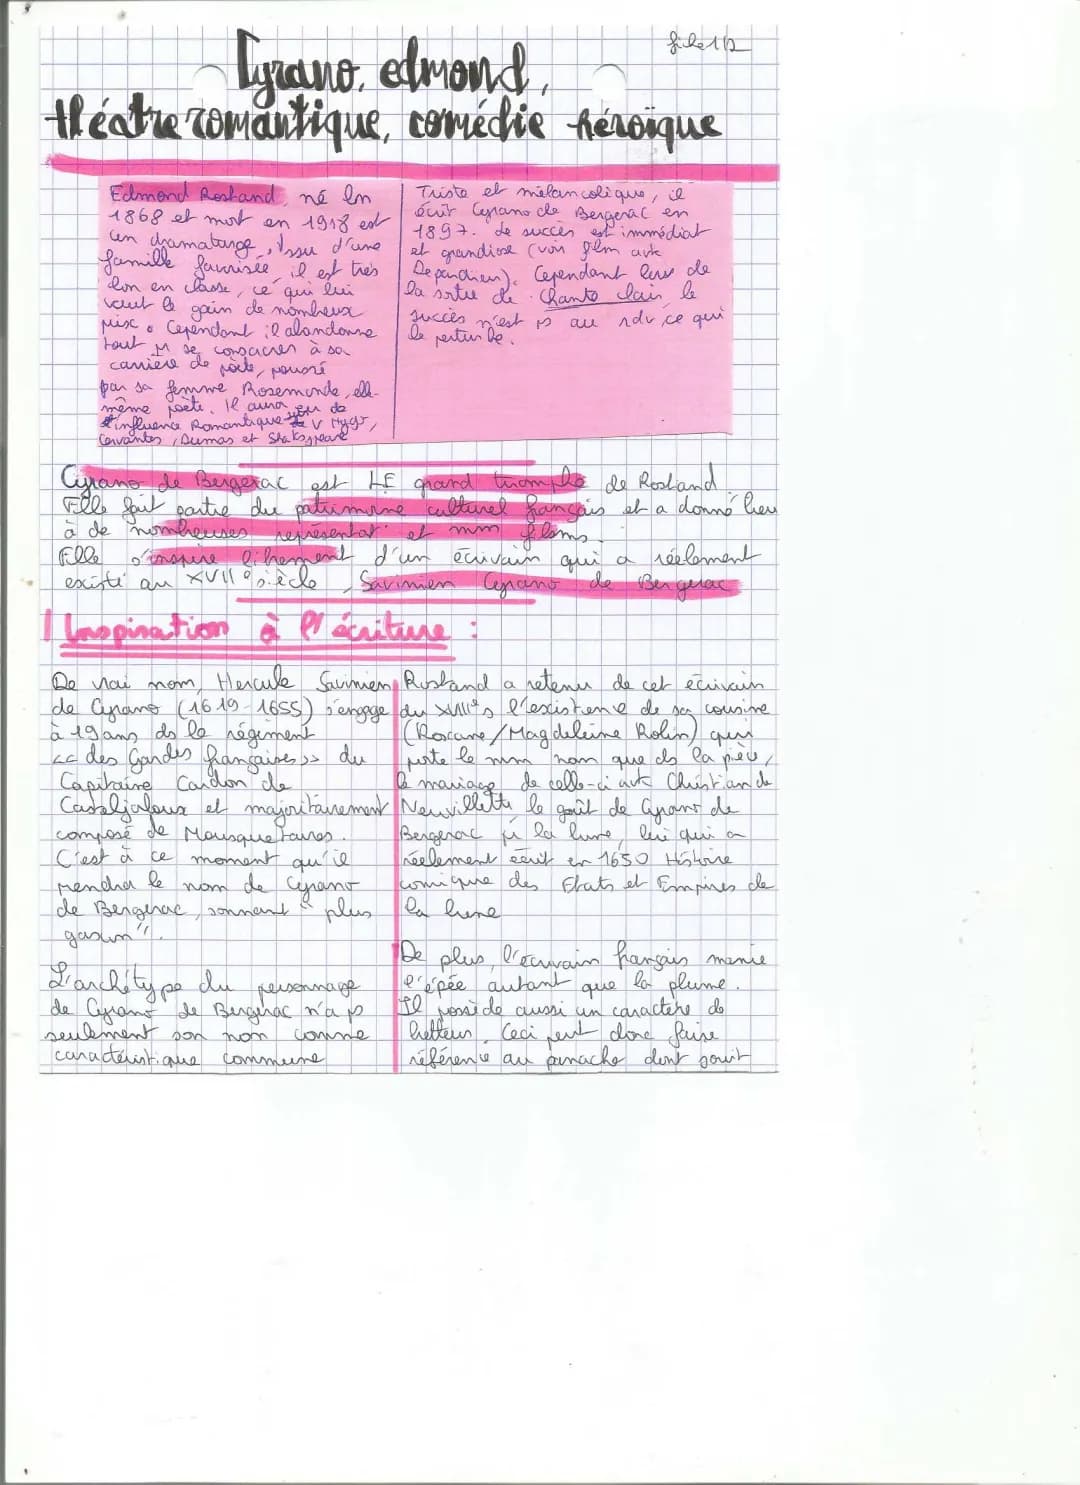 fiche 1/2
Cyrano, edmond,
théatre romantique, comédie héroïque
Edmond Rostand, né en
1868 et mort en 1918 est
un dramaturge, issu d'une
famille favorisée, il est très
bon en classe, ce qui lui
vaut le gain de nombreux
prix. Cependant il abandonne
tout pr se consacrer à sa
carrière de poète, poussé
par sa femme Rosemonde, elle-
même poète. Il aura eu de
l'influence Romantique de V Hugo,
Cervantes, Dumas et Shakspeare
Triste et mélancolique, il
écrit Cyrano de Bergerac en
1897. Le succès est immédiat
et grandiose (voir film avk
Depardieu). Cependant lors de
la sortie de Chante clair, le
succès n'est ps au rdv, ce qui
le perturbe.
Cyrano de Bergerac est LE grand triomphe de Rostand
Elle fait partie du patrimoine culturel français et a donné lieu
à de nombreuses représentat° et mm films.
Elle s'inspire librement d'un écrivain qui a réelement
existé au XVII° siècle, Savinien Cyrano de Bergerac
I Inspiration à l'écriture :
De vrai nom, Hercule Savinien
de Cyrano (1619-1655) s'engage
à 19 ans ds le régiment
<< des Gardes françaises >> du
Capitaine Cardon de
Casteljaloux et majoritairement
composé de Mousquetaires.
C'est à ce moment qu'il
prendra le nom de Cyrano
de Bergerac, sonnant "plus
gascon".
L'archétype du personnage
de Cyrano de Bergerac n'a ps
seulement son nom comme
caractéristique commune
Rostand a retenu de cet écrivain
du XVII°s l'existence de sa cousine
(Roxane/Magdeleine Robin) qui
porte le mm nom que ds la pièce,
le mariage de celle-ci avk Christian de
Neuvillette le goût de Cyrano de
Bergerac pr la lune, lui qui a
réelement écrit en 1650 Histoire
comique des Etats et Empires de
la lune
De plus, l'écrivain français manie
l'épée autant que la plume.
Il possède aussi un caractère de
bretteur. Ceci peut donc faire
référence au panache dont jouit